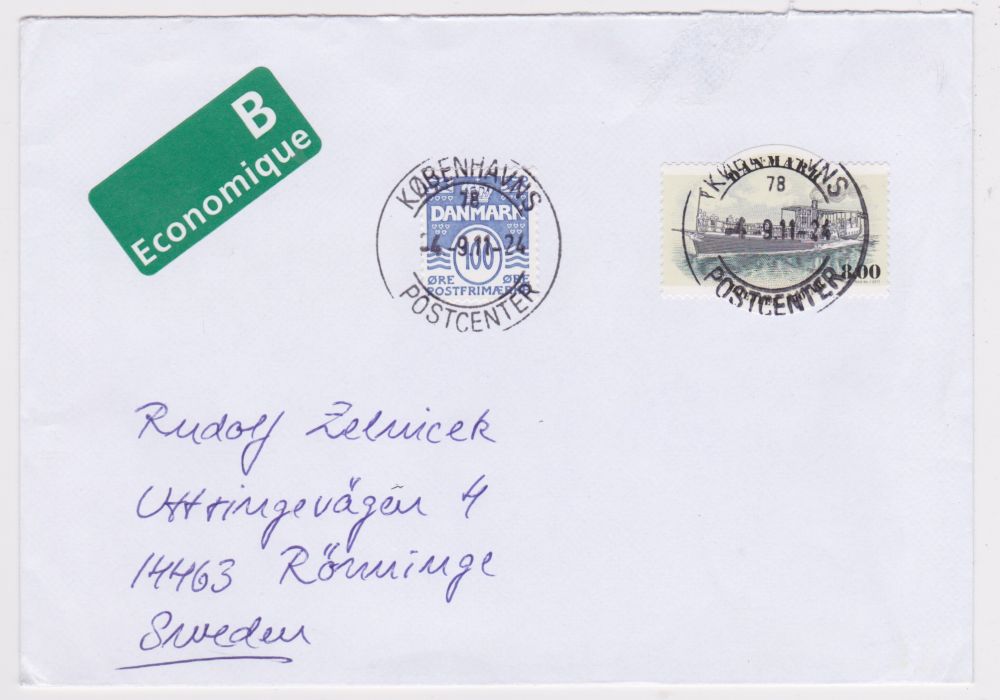 B
Economique
KØBENHAVNS
78
DANMARK
-4.-9.11-24
100
ØRE ØRE
POSTFRIMÆRKE
POSTCENTER
DANMARK
78
9.11-24
8.00
POSTCENTER
Rudolf Zelnicek
Uttringevägen 4
14463 Rönninge
Sweden